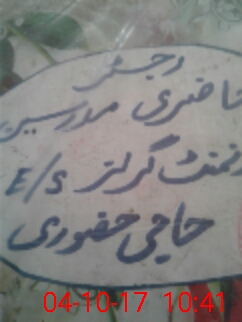 رجسٹر
حاضری مدرسین
گرلز E/S
حاجی حضوری
04-10-17 10:41